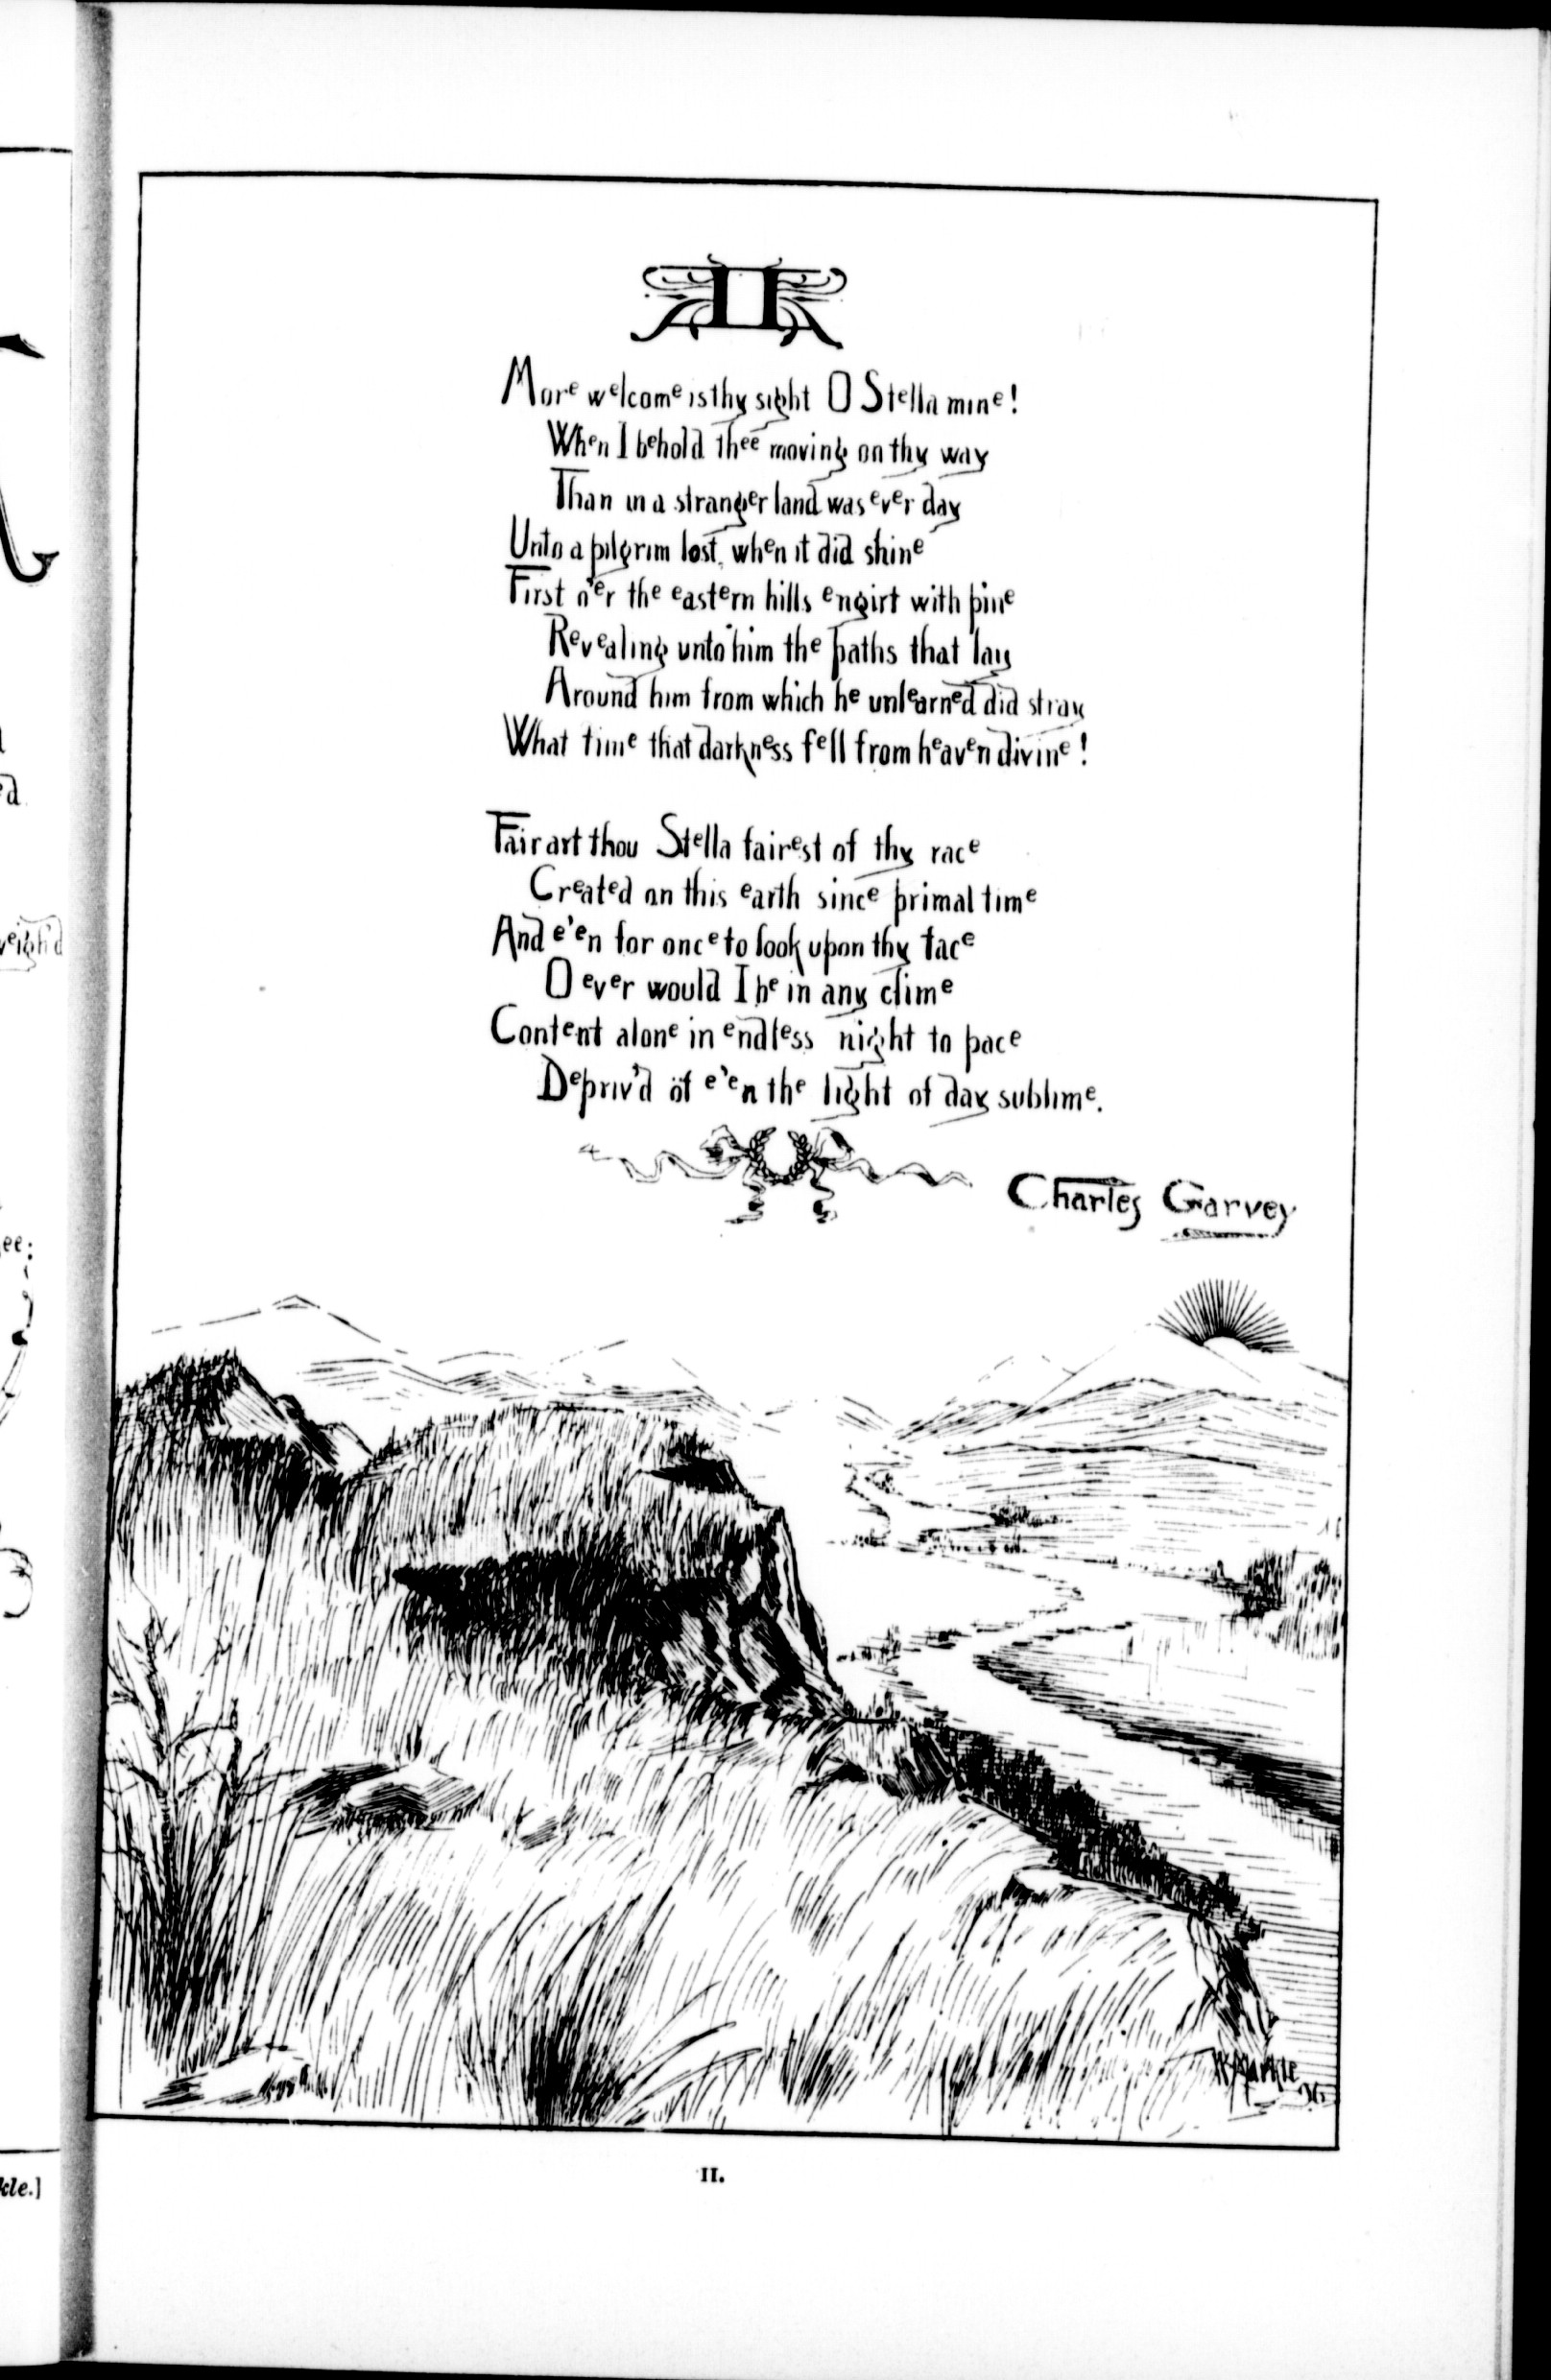 II
More welcome is thy sight O Stella mine!
When I behold thee moving on thy way
Than in a stranger land was ever day
Unto a pilgrim lost, when it did shine
First o'er the eastern hills engirt with pine
Revealing unto him the paths that lay
Around him from which he unlearned did stray
What time that darkness fell from heaven divine!
Fair art thou Stella fairest of thy race
Created on this earth since primal time
And e'en for once to look upon thy face
O ever would I be in any clime
Content alone in endless night to pace
Depriv'd of e'en the light of day sublime.
Charles Garvey
Markle
II.
veigh'd
ee;
kle.]